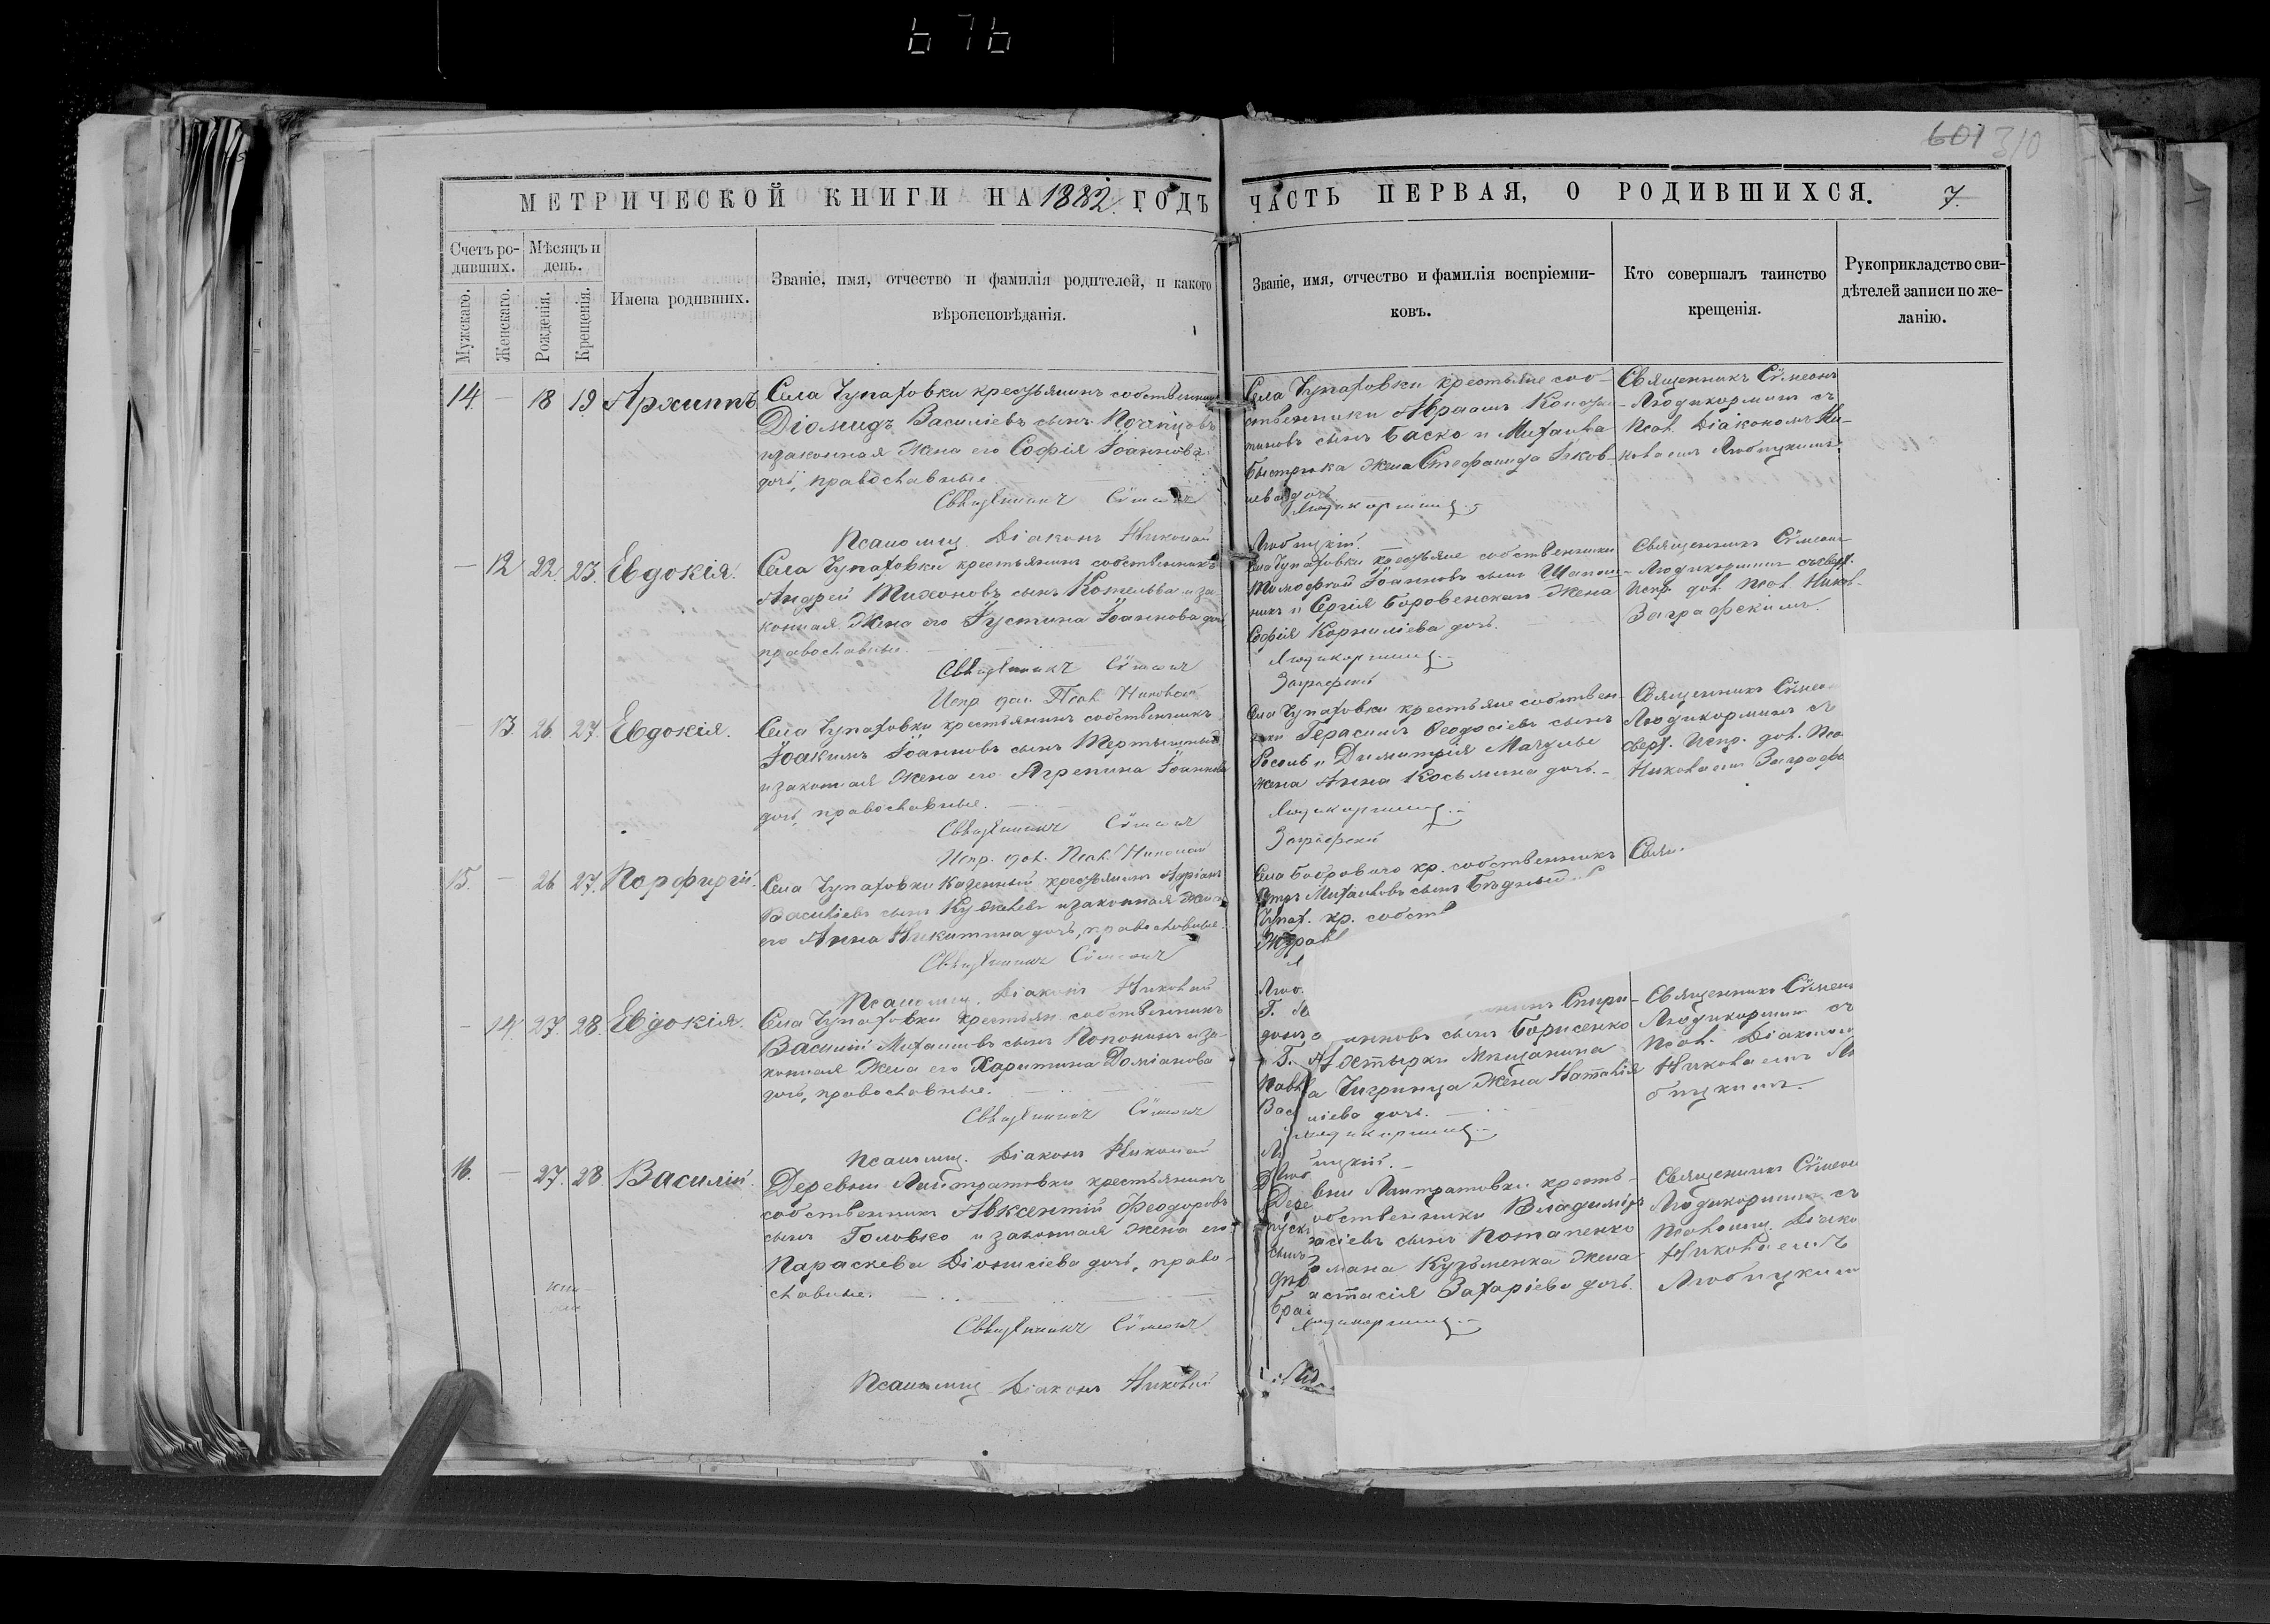 676
601 310
МЕТРИЧЕСКОЙ КНИГИ НА 1882 ГОДЪ
ЧАСТЬ ПЕРВАЯ, О РОДИВШИХСЯ. 7.
Счетъ ро-
дивших.
Мѣсяцъ и
день.
Мужскаго.
Женскаго.
Рожденія.
Крещенія.
Имена родивших.
Званіе, имя, отчество и фамилія родителей, и какого
вѣроисповѣданія.
Званіе, имя, отчество и фамилія воспріемни-
ковъ.
Кто совершалъ таинство
крещенія.
Рукоприкладство сви-
дѣтелей записи по же-
ланію.
14. — 18 19 Архиппъ
Села Чупаховки крестьянинъ собственникъ
Діомидъ Василіевъ сынъ
изаконная жена его Софія Іоаннова
дочь, православные
Священникъ Сѵмеонъ
Псаломщ. Діаконъ Николай
Села Чупаховки крестьяне соб-
ственники Авраамъ
сынъ Баско и Михаила
Быстрика жена Стефанида Іаков-
лева дочь
Людикорминъ
Любицкій.
Священникъ Сѵмеонъ
Людикорминъ съ
Псал. Діакономъ Ни-
колаемъ Любицкимъ.
— 12 22. 23. Евдокія.
Села Чупаховки крестьянинъ собственникъ
Андрей Тихоновъ сынъ Кошельва иза
конная жена его Іустина Іоаннова дочь
православные.
Священникъ Сѵмеонъ
Испр. дол. Псал. Николай
Села Чупаховки крестьяне собственники
Тимофей Іоанновъ сынъ
и Сергія Боровенскаго жена
Софія Корниліева дочь.
Людикорминъ
Заграфскій
Священникъ Сѵмеонъ
Людикорминъ съ сверх.
Испр. дол. Псал. Никол.
Заграфскимъ.
— 13. 26. 27. Евдокія.
Села Чупаховки крестьянинъ собственникъ
Іоакимъ Іоанновъ сынъ
изаконная жена его Агрепина Іоаннова
дочь, православные.
Священникъ Сѵмеонъ
Испр. дол. Псал. Николай
Села Чупаховки крестьяне собствен-
ники Герасимъ Ѳеодосіевъ сынъ
и Димитрія
жена Анна Косьмина дочь.
Людикорминъ
Заграфскій
Священникъ Сѵмео
Людикорминъ съ
сверх. Испр. дол. Пса
Николаемъ Заграфс
15. — 26 27. Порфирій.
Села Чупаховки Казенный крестьянинъ Адріанъ
Василіевъ сынъ изаконная жена
его Анна Никитина дочь, православные.
Священникъ Сѵмеонъ
Псаломщ. Діаконъ Николай
Села Боброваго кр. собственникъ
Петръ Михаиловъ сынъ Бѣдный
Чупах. кр. собств
Журав
Любо
Свящ
— 14. 27. 28. Евдокія.
Села Чупаховки крестьян. собственникъ
Василій Михаиловъ сынъ иза-
конная жена его Харитина Доміанова
дочь, православные.
Священникъ Сѵмеонъ
Псаломщ. Діаконъ Николай
Спири-
сынъ Борисенко
Г. Ахтырки Мѣщанина
Чигринца жена Наталія
ліева дочь.
Людикорминъ
ицкій.
Священникъ Сѵмеонъ
Людикорминъ съ
Псал. Діакономъ
Николаемъ Лю
бицкимъ.
16. — 27. 28 Василій.
Деревни крестьянинъ
собственникъ Авксентій Ѳеодоровъ
сынъ Головко изаконная жена его
Параскева Діонисіева дочь, право-
славные.
Священникъ Сѵмеонъ
Псаломщ. Діаконъ Николай
вни кресть-
обственники Владиміръ
асіевъ сынъ Потапенко
мана Кузьменка жена
астасія Захаріева дочь.
Людикорминъ
Священникъ Сѵмео
Людикорминъ съ
Псаломщ. Діако
Николаемъ
Любицким